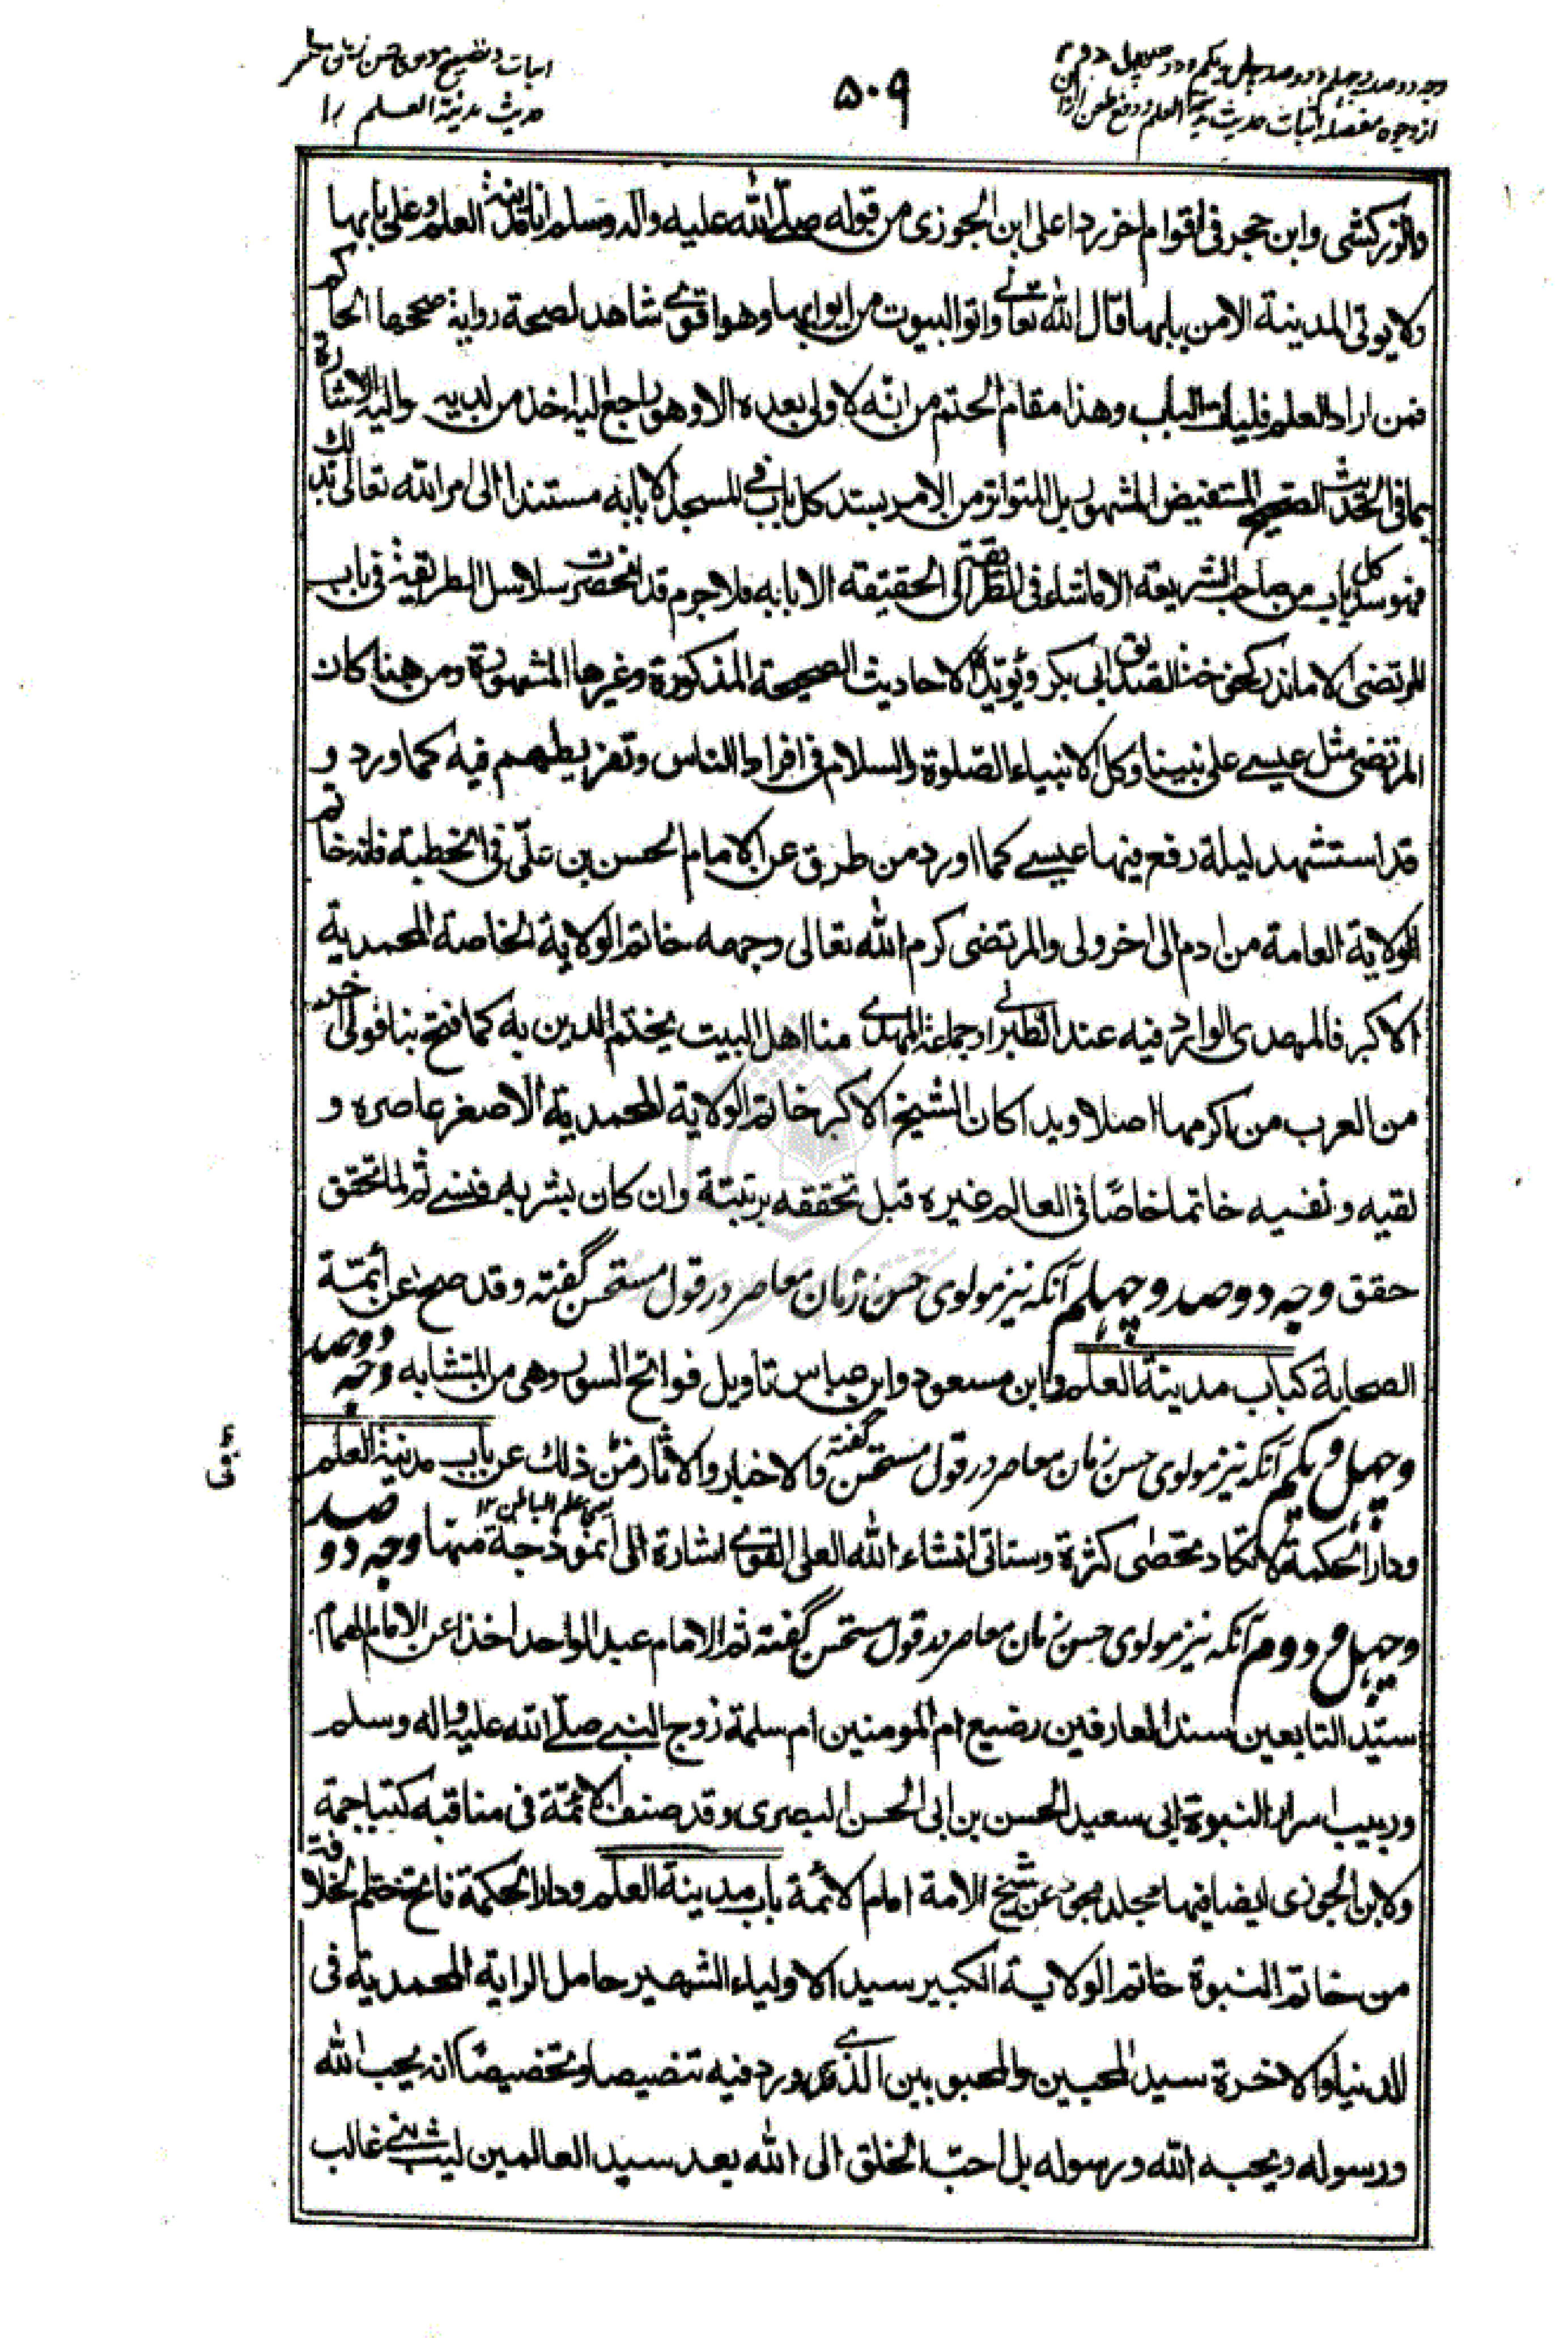 وجه دو صد و چهلم و دو صد و چهل و یکم و دو صد و چهل و دوم
از وجوه مفصله اثبات حدیث مدینة العلم و دفع طعن ازان
۵۰۹
اثبات و تصحیح مولوی حسن زمان معاصر
حدیث مدینة العلم را
والزرکشی وابن حجر فی اقوام اخر ردا علی ابن الجوزی من قوله صلّی الله علیه واله وسلم انا مدینة العلم وعلی بابها
ولا یوتی المدینة الا من بابها قال الله تعالی واتوا البیوت من ابوابها وهو اقوی شاهد لصحة روایة صححها الحاکم
فمن اراد العلم فلیات الباب وهذا مقام الختم من انّه لا ولی بعده الا وهو راجع الیه اخذ من لدیه والیه الاشارة
بما فی الحدیث الصحیح المستفیض المشهور بل المتواتر من الامر بسد کل باب فی المسجد الا بابه مستندا الی امر الله تعالی بذلک
فهو سد کل باب من صاحب الشریعة الا ما شاء فی الطریقة الی الحقیقة الا بابه فلا جرم قد انحصرت سلاسل الطریقة فی باب
المرتضی الا ما ندر کخوخة الصدیق ابی بکر ویؤیده الاحادیث الصحیحة المذکورة وغیرها المشهورة ومن هنا کان
المرتضی مثل عیسی علی نبینا وکل الانبیاء الصّلوة والسلام فی افراط الناس وتفریطهم فیه کما ورد و
قد استشهد لیلة رفع فیها عیسی کما اورد من طرق عن الامام الحسن بن علیّ فی الخطبة فانه خاتم
الولایة العامة من ادم الی اخر ولی والمرتضی کرم الله تعالی وجهه خاتم الولایة الخاصة المحمدیة
الاکبر فالمهدی الوارد فیه عند الطبرانی وجماعة المهدی منا اهل البیت یختم الدین به کما فتح بنا فولی اخر
من العرب من اکرمها اصلا ویدا کان الشیخ الاکبر خاتم الولایة المحمدیة الاصغر عاصره و
لقیه و نفسه خاتما خاصّا فی العالم غیره قبل تحققه برتبتة وان کان بشر به فنسی ثم لما تحقق
حقق وجه دو صد و چهلم آنکه نیز مولوی حسن زمان معاصر در قول مستحسن گفته وقد صح عن أئمّة
الصحابة کباب مدینة العلم وابن مسعود وابن عباس تاویل فواتح السور وهی من المتشابه وجه دو صد
وچهل و یکم آنکه نیز مولوی حسن زمان معاصر در قول مستحسن گفته والاخبار والاثار فی ذلك عن باب مدینة العلم
فی
یعنی علم الباطن ۱۲
ودار الحکمة لا تکاد تحصی کثرة وستاتی انشاء الله العلی القوی اشارة الی انموذجة منها وجه دو صد
وچهل و دوم آنکه نیز مولوی حسن زمان معاصر در قول مستحسن گفته ثم الامام عبد الواحد اخذ عن الامام الهمام
سیّد التابعین سند العارفین رضیع ام المومنین ام سلمة زوج النبی صلّی الله علیه واله وسلم
وربیب اسرار النبوة ابی سعید الحسن بن ابی الحسن البصری وقد صنف الائمّة فی مناقبه کتبا جمة
ولابن الجوزی ایضا فیها مجلد مجود عن شیخ الامة امام الائمة باب مدینة العلم ودار الحکمة فاتح ختم الخلافة
من خاتم النبوة خاتم الولایة الکبیر سید الاولیاء الشهیر حامل الرایة المحمدیة فی
الدنیا والاخرة سید المحبین والمحبوبین الذی ورد فیه تنصیصا وتخصیصا انه یحب الله
ورسوله ویحبه الله ورسوله بل احبّ الخلق الی الله بعد سید العالمین لیث بنی غالب